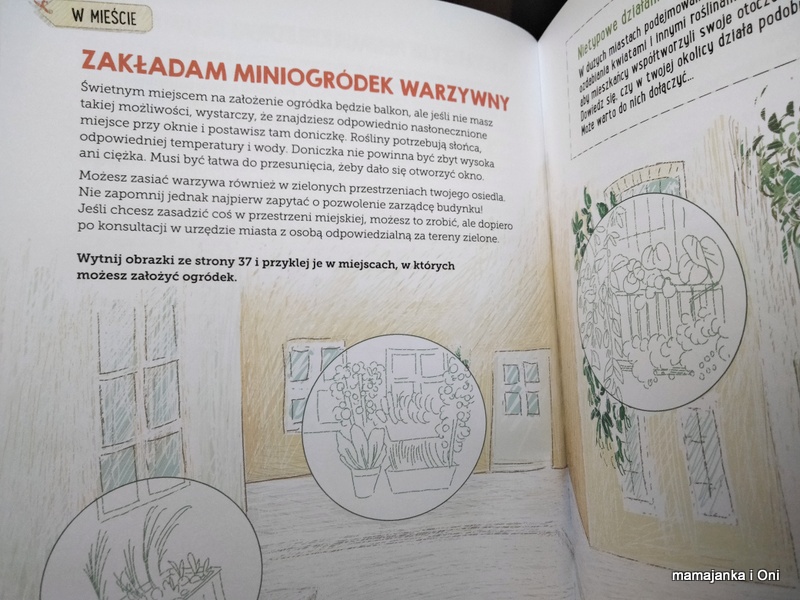 W MIEŚCIE
ZAKŁADAM MINIOGRÓDEK WARZYWNY
Świetnym miejscem na założenie ogródka będzie balkon, ale jeśli nie masz
takiej możliwości, wystarczy, że znajdziesz odpowiednio nasłonecznione
miejsce przy oknie i postawisz tam doniczkę. Rośliny potrzebują słońca,
odpowiedniej temperatury i wody. Doniczka nie powinna być zbyt wysoka
ani ciężka. Musi być łatwa do przesunięcia, żeby dało się otworzyć okno.
Możesz zasiać warzywa również w zielonych przestrzeniach twojego osiedla.
Nie zapomnij jednak najpierw zapytać o pozwolenie zarządcę budynku!
Jeśli chcesz zasadzić coś w przestrzeni miejskiej, możesz to zrobić, ale dopiero
po konsultacji w urzędzie miasta z osobą odpowiedzialną za tereny zielone.
Wytnij obrazki ze strony 37 i przyklej je w miejscach, w których
możesz założyć ogródek.
Nietypowe
W dużych miastach
ozdabiania kwiatami i innymi
aby mieszkańcy współtworzyli swoje
Dowiedz się, czy w twojej okolicy działa
Może warto do nich dołączyć...
mamajanka i Oni